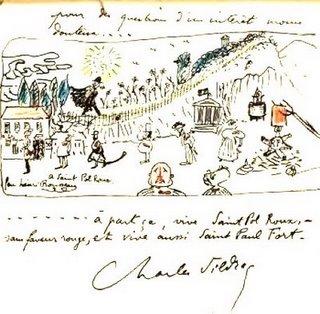 pour des question d'un intérêt moins
douteux....
à Saint Pol Roux
par Henri Rousseau
-------- à part ça, vive Saint Pol Roux, -
sans faveur rouge, et vive aussi Saint Paul Fort.
Charles Vildrac